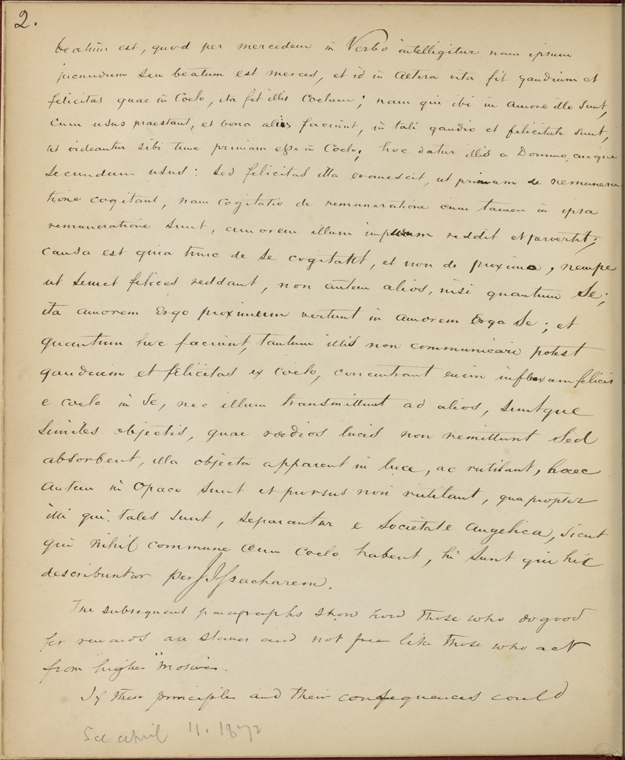 2.
beatum est, quod per mercedem in Verbo intelligitur nam ipsum
jucundum seu beatum est merces, et id in altera vita fit gaudium et
felicitas quae in Coelo, ita fit illis Coelum; nam qui ibi in amore illo sunt,
cum usus praestant, et bona aliis faciunt, in tali gaudio et felicitate sunt,
ut videantur sibi tunc primum esse in Coelo, hoc datur illis a Domino, cuique
secundum usus: sed felicitas illa evanescit, ut primum de remunera
tione cogitant, nam cogitatio de remuneratione cum tamen in ipsa
remuneratione sunt, amorem illum impurum reddit et pervertit;
causa est quia tunc de se cogitatet, et non de proximo, nempe
ut semet felices reddant, non autem alios, nisi quantum se;
ita amorem erga proximum vertunt in amorem erga se; et
quantum hoc faciunt, tantum illis non communicari potest
gaudium et felicitas ex coelo, concentrant enim influxum felicis
e coelo in se, nec illum transmittunt ad alios, suntque
similes objectis, quae radios lucis non remittunt sed
absorbent, illa objecta apparent in luce, ac rutilant, haec
autem in opaco sunt et prorsus non rutilant, quapropter
illi qui tales sunt, separantur e Societate angelica, sicut
qui nihil commune cum coelo habent, hi sunt qui hic
describuntur per Jissacharem.
The subsequent paragraphs show how those who do good
for rewards are slaves and not free like those who act
from higher motives.
If these principles and their consequences could
april 11. 1872